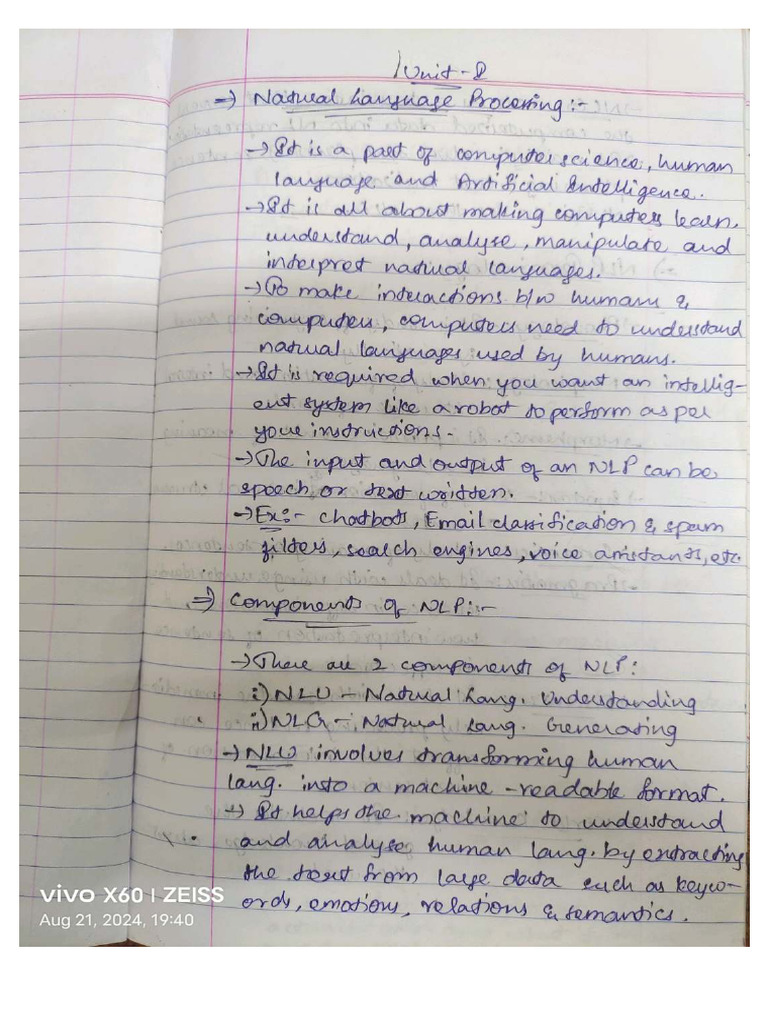 Unit - 8
=> Natural Language Processing :-
→ It is a part of computer science, human
language and Artificial Intelligence.
→ It is all about making computers learn,
understand, analyse, manipulate and
interpret natural languages.
→ To make interactions b/w humans &
computers, computers need to understand
natural languages used by humans.
→ It is required when you want an intellig-
ent system like a robot to perform as per
your instructions.
→ The input and output of an NLP can be
speech or text written.
→ Ex:- chatbots, Email classification & spam
filters, search engines, voice assistants, etc.
=> Components of NLP:-
→ There are 2 components of NLP:
i) NLU - Natural Lang. Understanding
ii) NLG - Natural Lang. Generating
→ NLU involves transforming human
lang. into a machine-readable format.
→ It helps the machine to understand
and analyse human lang. by extracting
the text from large data such as keyw-
ords, emotions, relations & semantics.
vivo X60 | ZEISS
Aug 21, 2024, 19:40